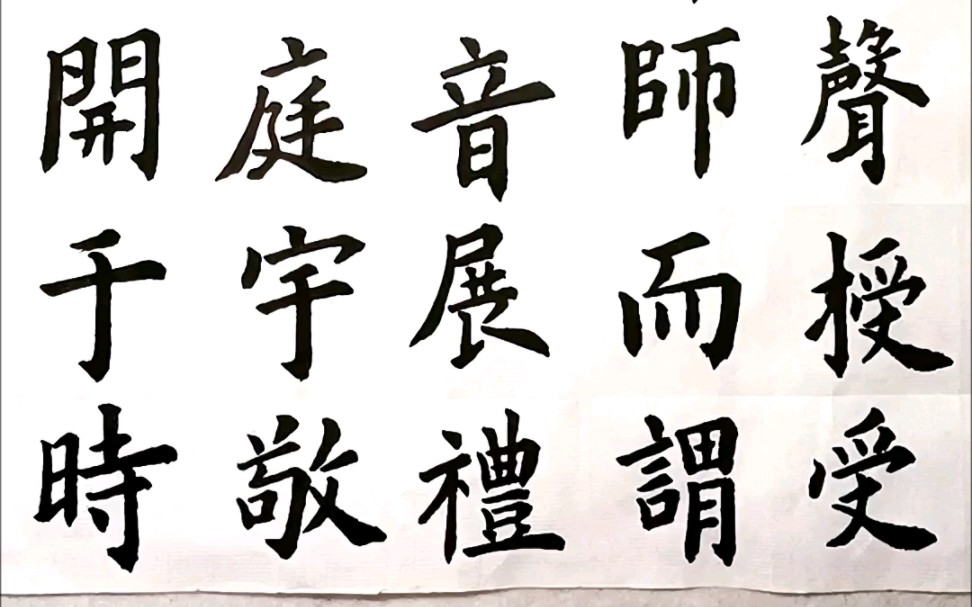 聲授受
師而謂
音展禮
庭宇敬
開于時